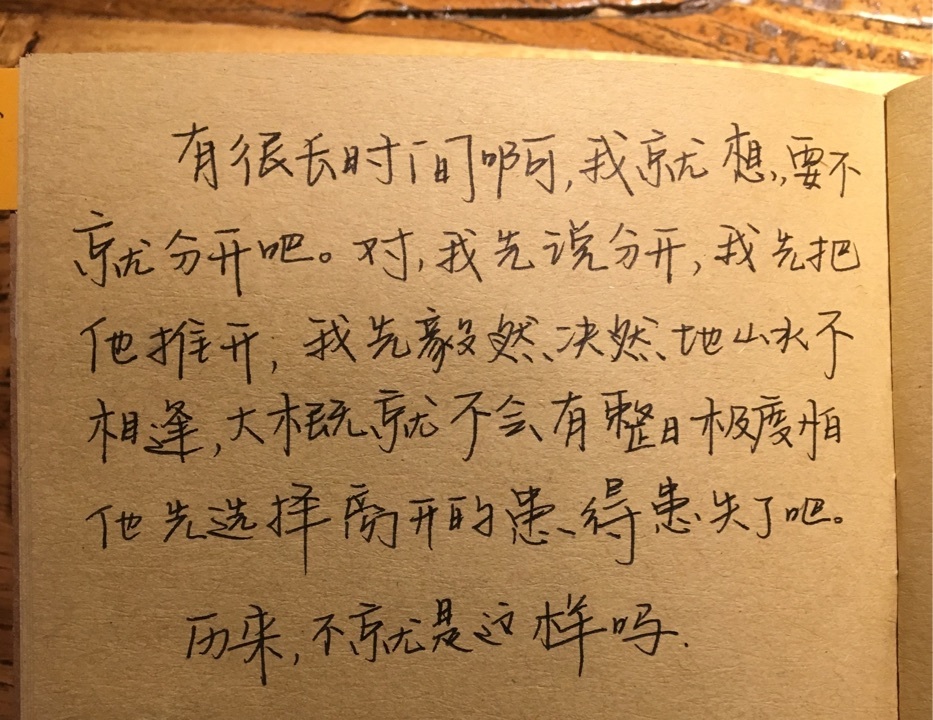 有很长时间啊,我就想,要不
就分开吧。对,我先说分开,我先把
他推开,我先毅然决然地山水不
相逢,大概就不会有整日极度怕
他先选择离开的患得患失了吧。
历来,不就是这样吗.